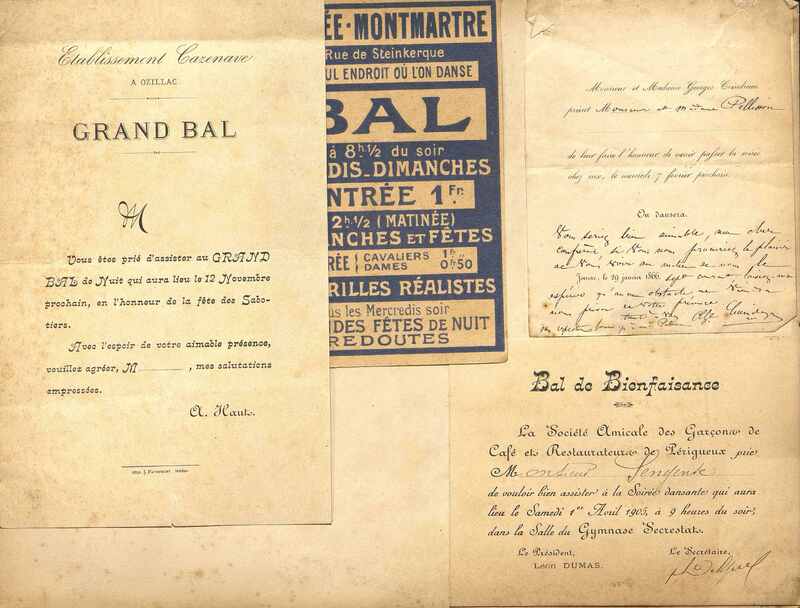 Etablissement Cazenave
A OZILLAC
GRAND BAL
M
Vous êtes prié d'assister au GRAND
BAL de Nuit qui aura lieu le 12 Novembre
prochain, en l'honneur de la fête des Sabo-
tiers.
Avec l'espoir de votre aimable présence,
veuillez agréer, M , mes salutations
empressées.
A. Hauts.
ÉE-MONTMARTRE
Rue de Steinkerque
UL ENDROIT OÙ L'ON DANSE
BAL
à 8h.1/2 du soir
DIS-DIMANCHES
NTRÉE 1Fr.
2h.1/2 (MATINÉE)
NCHES ET FÊTES
RÉE CAVALIERS 1f
DAMES 0f50
RILLES RÉALISTES
us les Mercredis soir
DES FÊTES DE NUIT
REDOUTES
Monsieur et Madame Georges
prient Monsieur et Madame Pellisson
de leur faire l'honneur de venir passer la soirée
chez eux, le mercredi 7 février prochain.
On dansera.
Vous seriez bien aimable, mon cher
confrère, si vous nous procuriez le plaisir
de vous voir au milieu de nous le
Jonzac, le 29 janvier 1866.
Bal de Bienfaisance
La Société Amicale des Garçons de
Café et Restaurateurs de Périgueux prie
Monsieur
de vouloir bien assister à la Soirée dansante qui aura
lieu le Samedi 1er Avril 1905, à 9 heures du soir,
dans la Salle du Gymnase Secrestat.
Le Président, Le Secrétaire,
LÉON DUMAS.